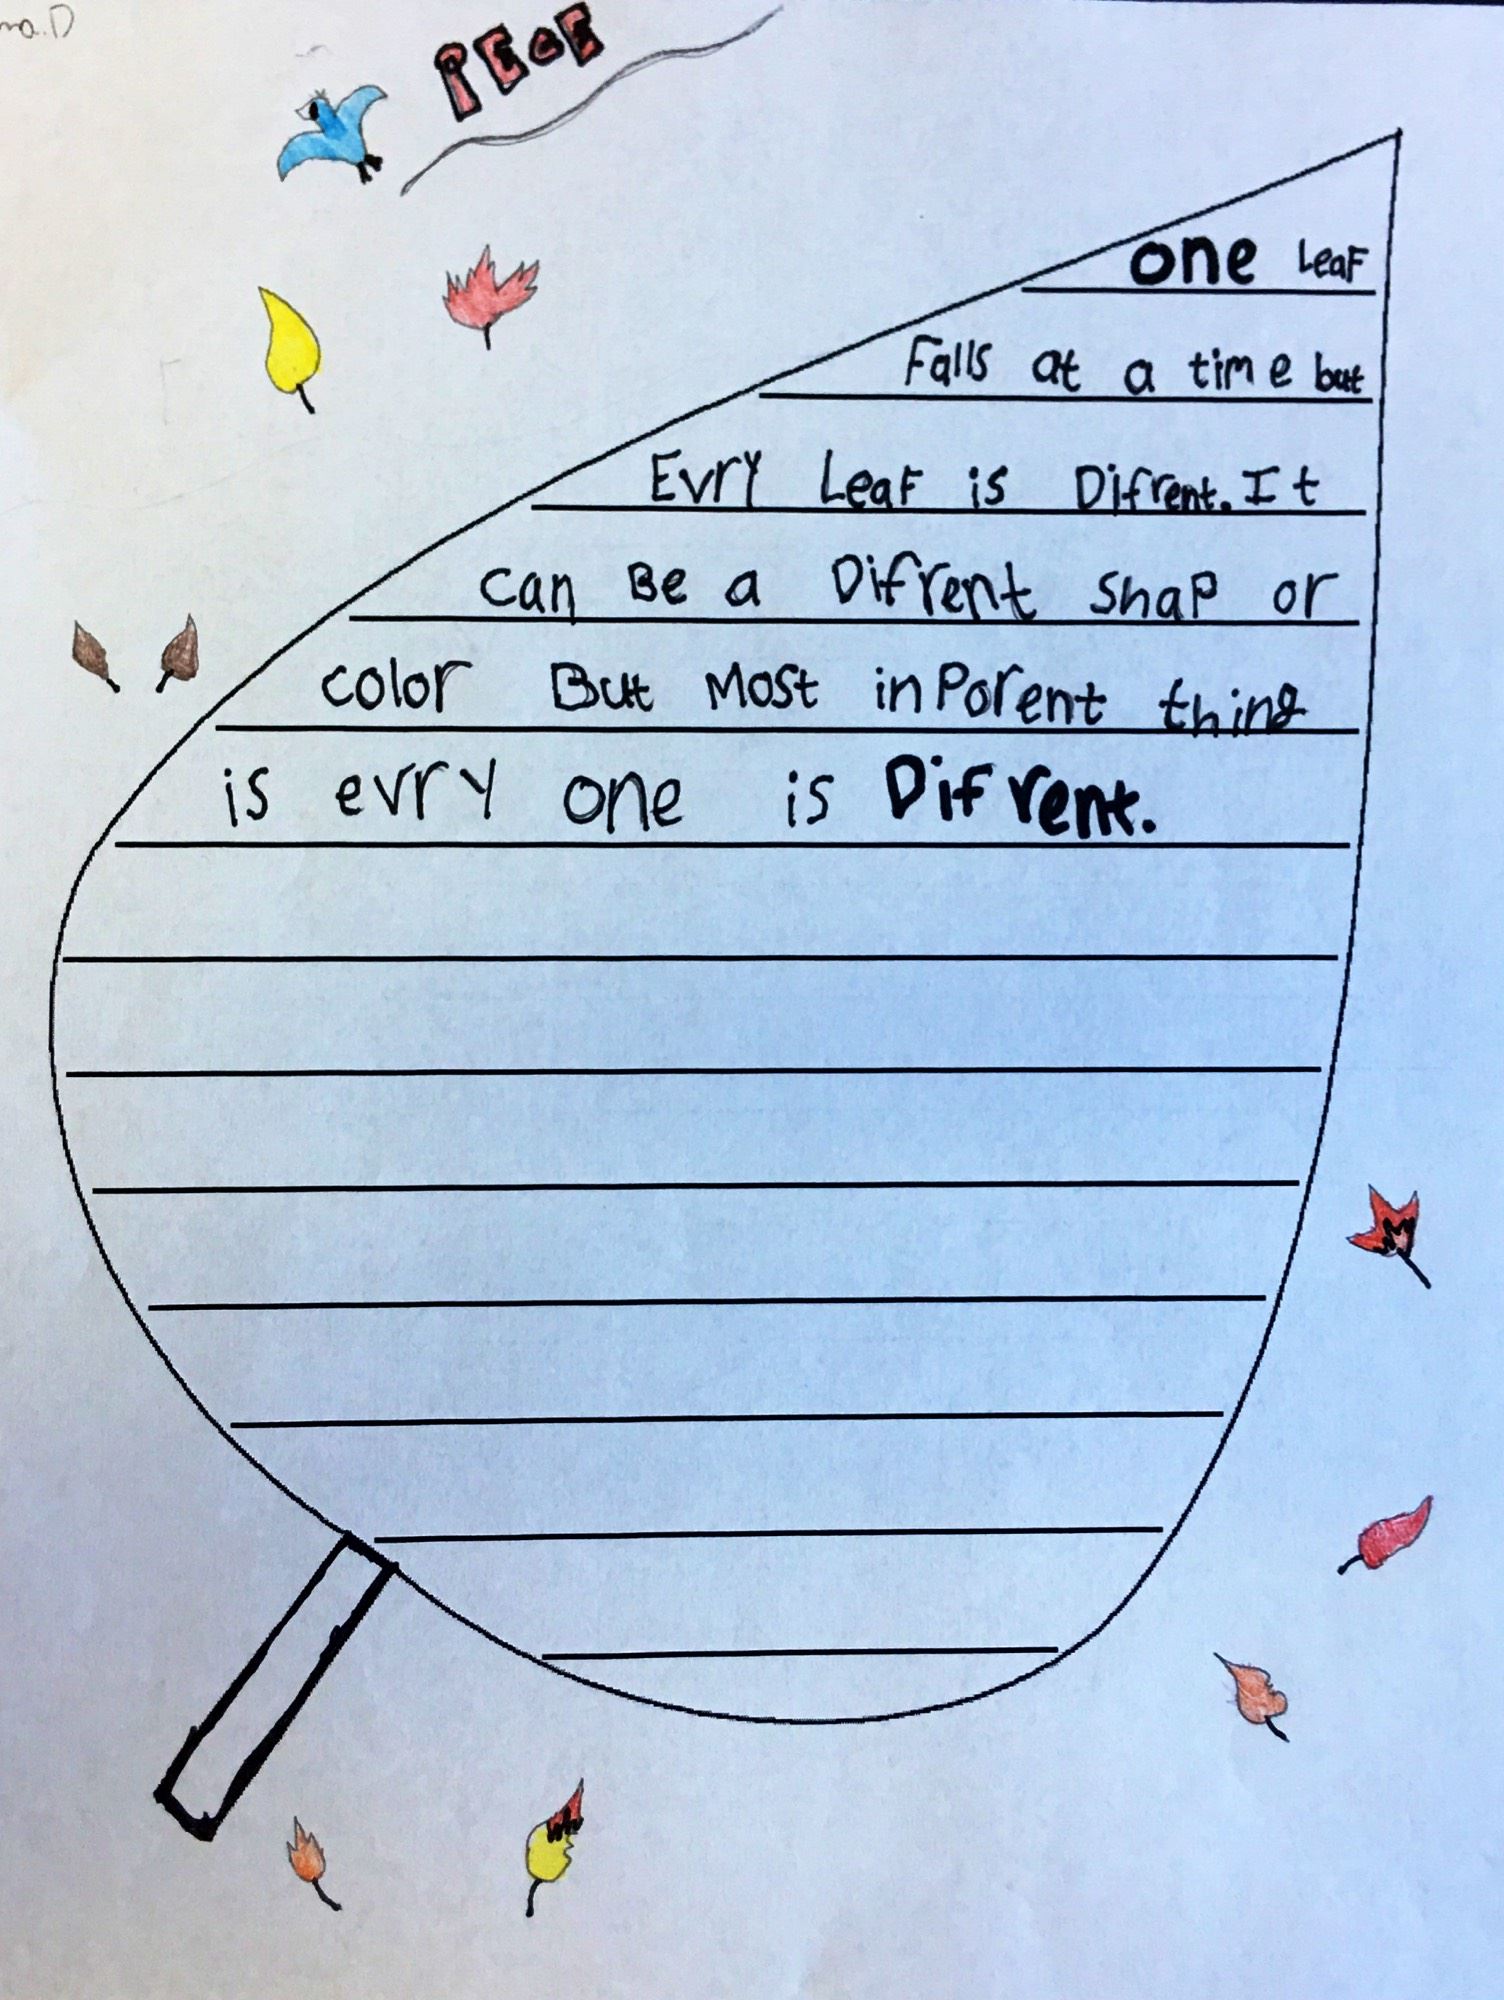 PECE
one Leaf
Falls at a time but
Evry Leaf is Difrent. It
can Be a Difrent shap or
color But Most inPorent thing
is evry one is Difrent.